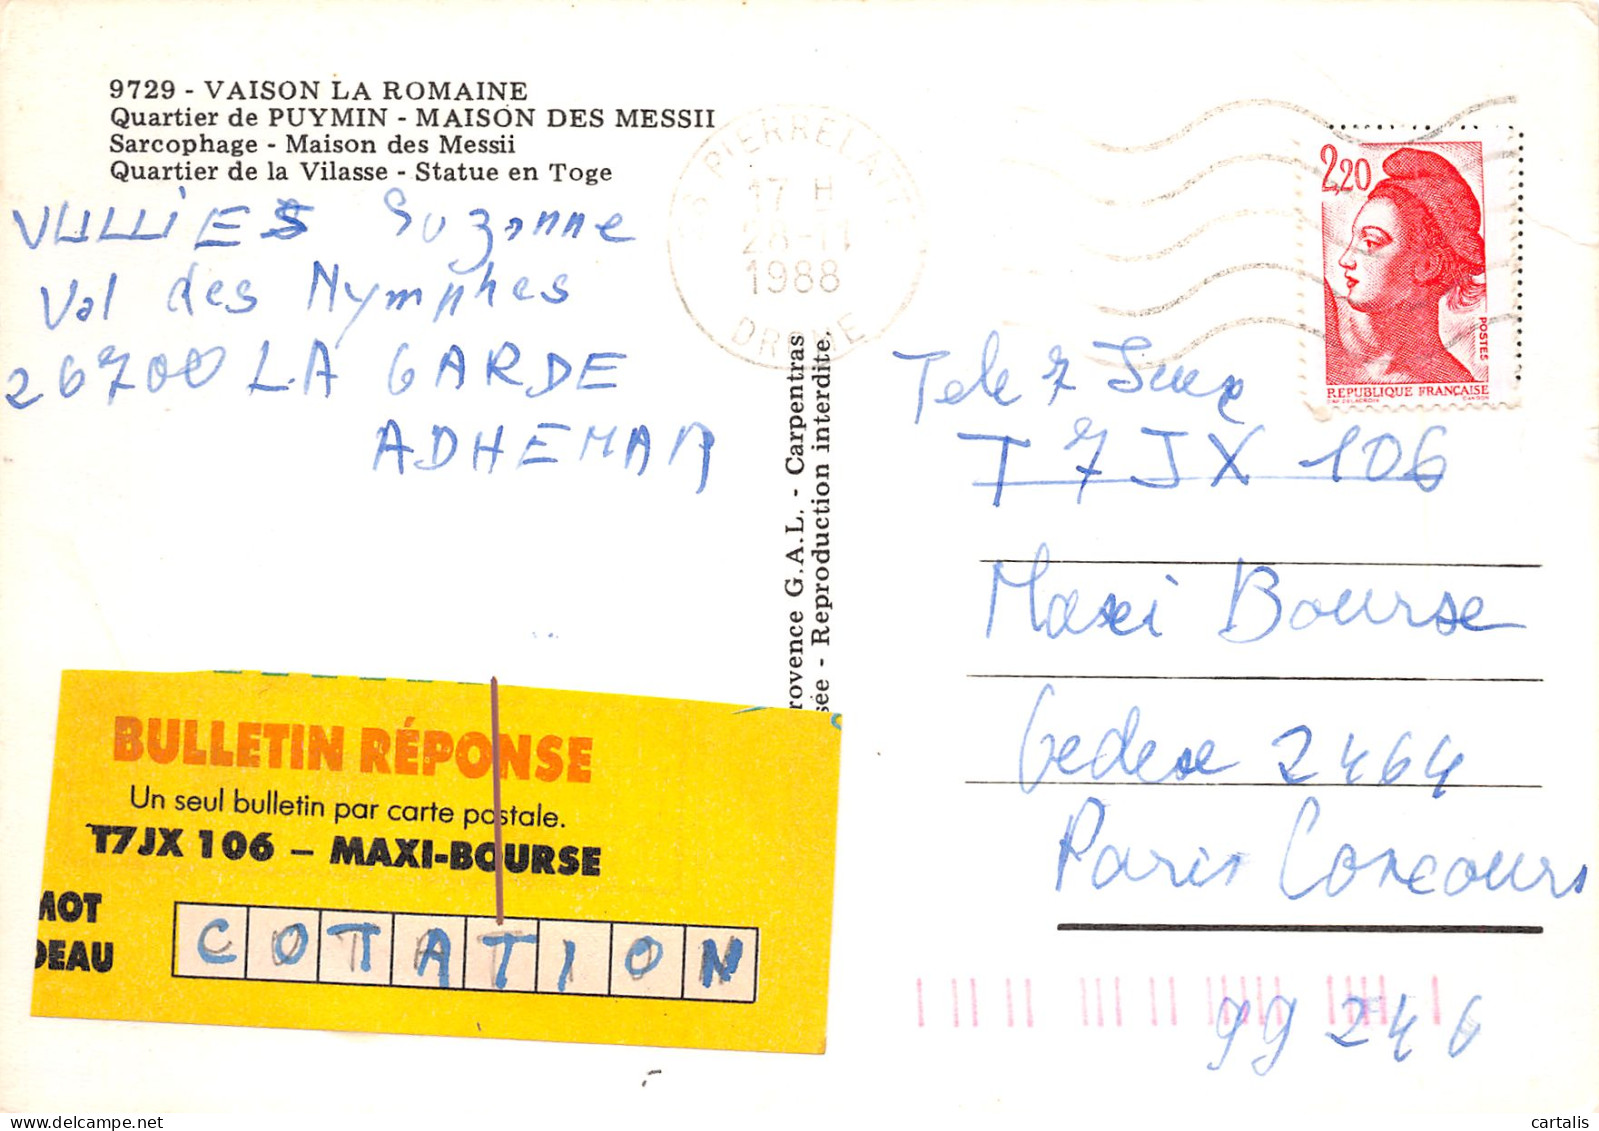 9729 - VAISON LA ROMAINE
Quartier de PUYMIN - MAISON DES MESSII
Sarcophage - Maison des Messii
Quartier de la Vilasse - Statue en Toge
VULLIES Suzanne
Val des Nymphes
26700 LA GARDE
ADHEMAR
PIERRELATTE
17 H
28-11
1988
DROME
2,20
POSTES
REPUBLIQUE FRANÇAISE
rovence G.A.L. - Carpentras
sée - Reproduction interdite.
Tele 7 Jeux
T 7 JX 106
Maxi Bourse
Cedex 2464
Paris Concours
99 246
BULLETIN RÉPONSE
Un seul bulletin par carte postale.
T7JX 106 – MAXI-BOURSE
MOT
DEAU
COTATION
cartalis.com